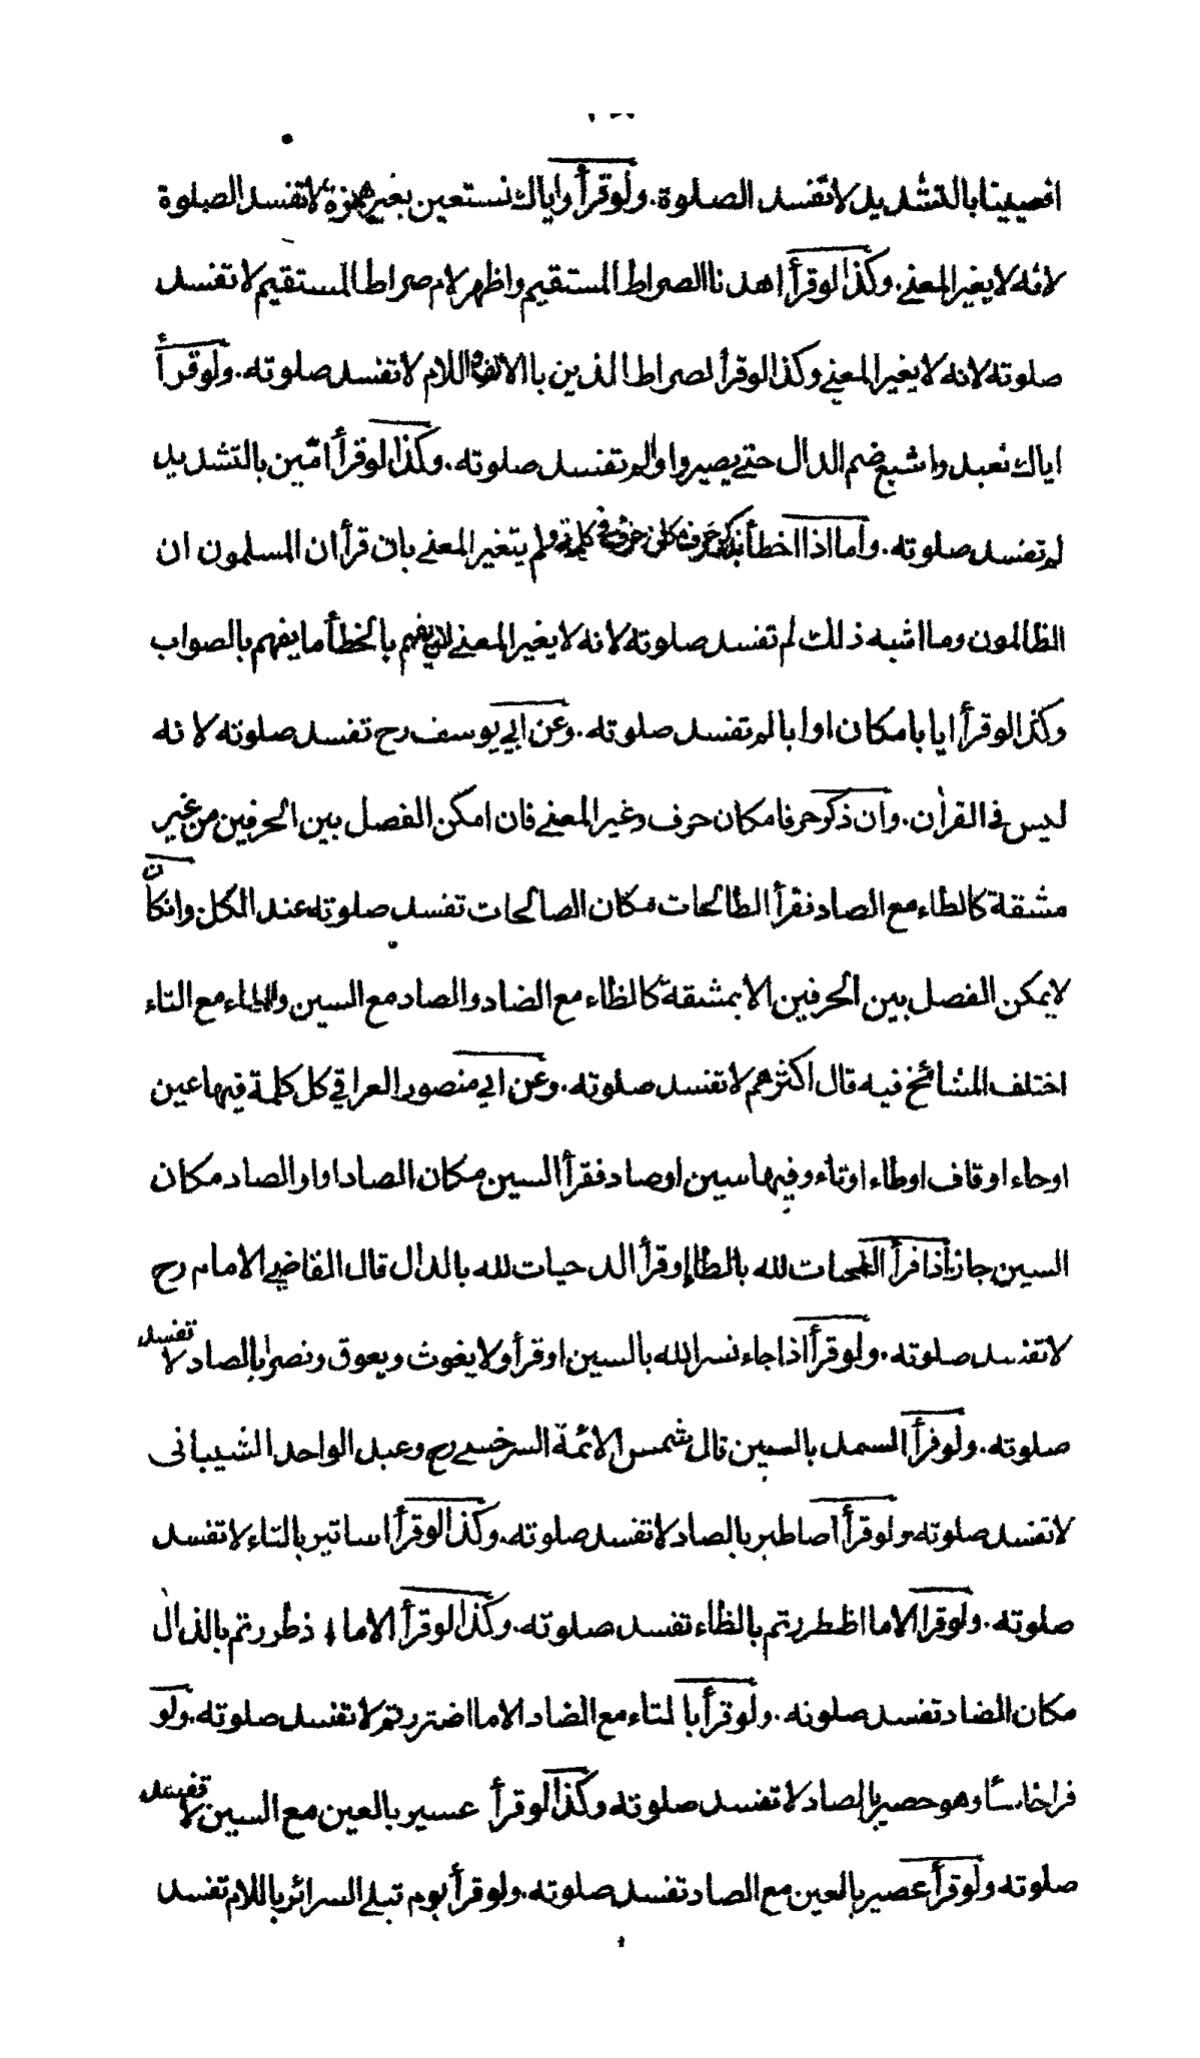 افعيينا بالتشديد لا تفسد الصلوة. ولو قرأ واياك نستعين بغير همزة لا تفسد الصلوة
لانه لا يغير المعنى. وكذا لو قرأ اهدنا الصراط المستقيم واظهر لام صراط المستقيم لا تفسد
صلوته لانه لا يغير المعنى وكذا لو قرأ لصراط الذين با الالف واللام لا تفسد صلوته. ولو قرأ
اياك نعبد واشبع ضم الدال حتى يصير واوا لم تفسد صلوته. وكذا لو قرأ امّين بالتشديد
لم تفسد صلوته. واما اذا اخطأ بذكر حرف مكان حرف في كلمة ولم يتغير المعنى بان قرأ ان المسلمون ان
الظالمون وما اشبه ذلك لم تفسد صلوته لانه لا يغير المعنى لان يفهم بالخطأ ما يفهم بالصواب
وكذا لو قرأ ايابا مكان اوابا لم تفسد صلوته. وعن ابي يوسف رح تفسد صلوته لانه
ليس في القرأن. وان ذكر حرفا مكان حرف وغير المعنى فان امكن الفصل بين الحرفين من غير
مشقة كالطاء مع الصاد فقرأ الطالحات مكان الصالحات تفسد صلوته عند الكل وان كان
لا يمكن الفصل بين الحرفين الا بمشقة كالظاء مع الضاد والصاد مع السين والطاء مع التاء
اختلف المشائخ فيه قال اكثرهم لا تفسد صلوته. وعن ابي منصور العراقي كل كلمة فيها عين
اوحاء اوقاف اوطاء اوتاء وفيها سين اوصاد فقرأ السين مكان الصاد اوار الصاد مكان
السين جاز اذا قرأ التحيات لله بالطا اوقرأ الدحيات لله بالدال قال القاضي الامام رح
لا تفسد صلوته. ولو قرأ اذا جاء نسر الله بالسين اوقرأ ولا يغوث ويعوق ونصرا بالصاد لا تفسد
صلوته. ولو قرأ السمد بالسين قال شمس الائمة السرخسي رح وعبد الواحد الشيباني
لا تفسد صلوته ولو قرأ اصاطير بالصاد لا تفسد صلوته. وكذا لو قرأ اساتير بالتاء لا تفسد
صلوته. ولو قرا الا ما اظطررتم بالظاء تفسد صلوته. وكذا لو قرأ الا ما اذطررتم بالذال
مكان الضاد تفسد صلوته. ولو قرأ با لتاء مع الضاد الا ما اضتررتم لا تفسد صلوته. ولو
قرا خاسئا وهو حصير بالصاد لا تفسد صلوته وكذا لو قرأ عسير بالعين مع السين لا تفسد
صلوته ولو قرأ عصير بالعين مع الصاد تفسد صلوته. ولو قرأ يوم تبلى السرائر باللام تفسد